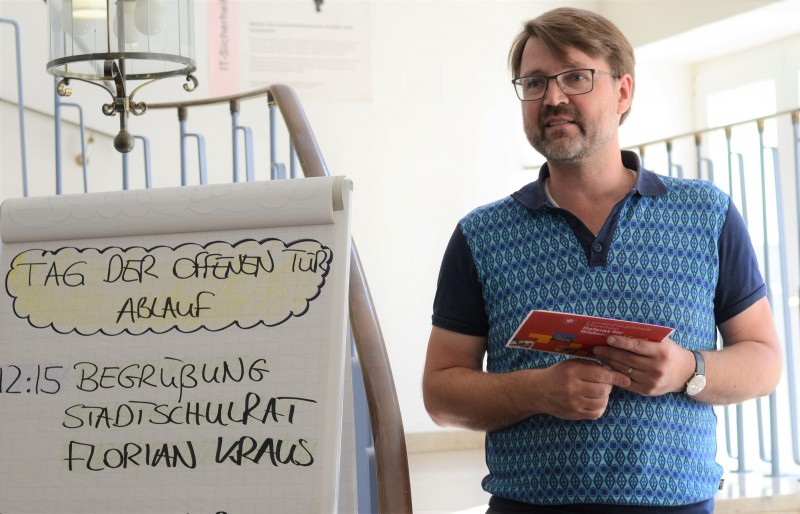 IT-Sicherheit
TAG DER OFFENEN TÜR
ABLAUF
12:15 BEGRÜẞUNG
STADTSCHULRAT
FLORIAN KRAUS
Referat für